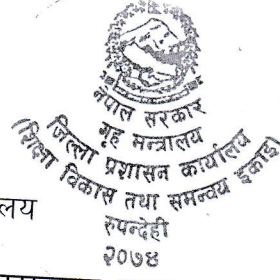 नेपाल सरकार
गृह मन्त्रालय
जिल्ला प्रशासन कार्यालय
(शिक्षा विकास तथा समन्वय इकाई)
रुपन्देही
२०७४
लय